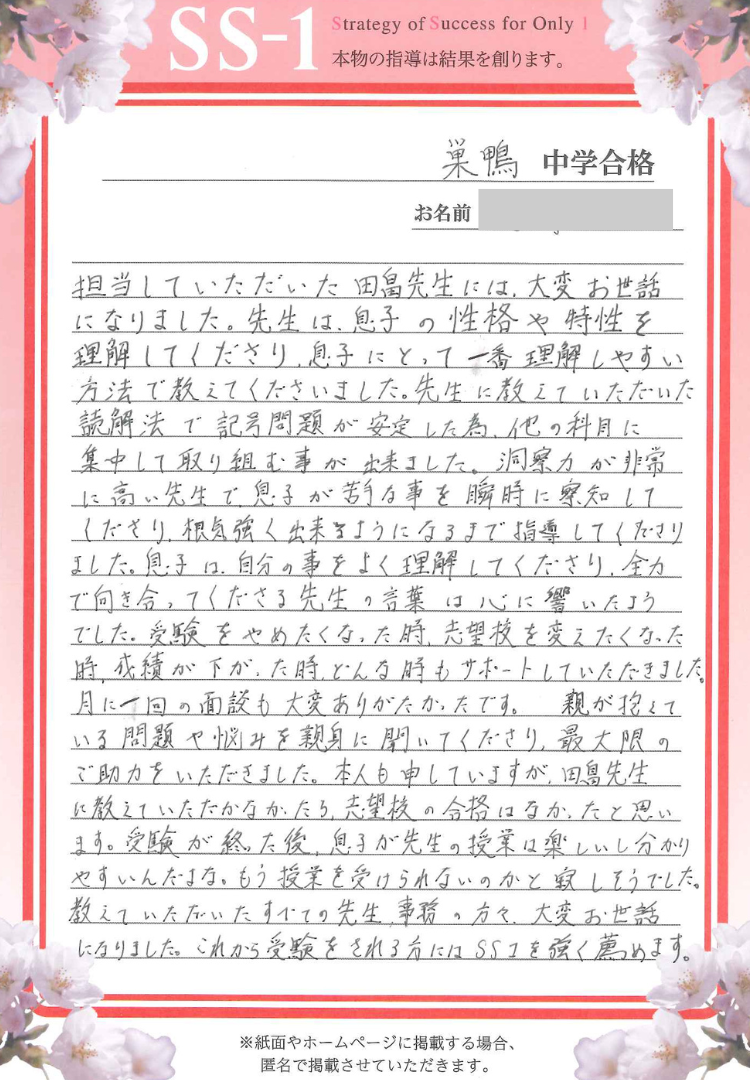 SS-1
Strategy of Success for Only 1
本物の指導は結果を創ります。
巣鴨 中学合格
お名前
担当していただいた田畠先生には、大変お世話
になりました。先生は、息子の性格や特性を
理解してくださり、息子にとって一番理解しやすい
方法で教えてくださいました。先生に教えていただいた
読解法で記号問題が安定した為、他の科目に
集中して取り組む事が出来ました。洞察力が非常
に高い先生で、息子が苦手な事を瞬時に察知して
くださり、根気強く出来るようになるまで指導してくださり
ました。息子は、自分の事をよく理解してくださり、全力
で向き合ってくださる先生の言葉は心に響いたよう
でした。受験をやめたくなった時、志望校を変えたくなった
時、成績が下がった時、どんな時もサポートしていただきました。
月に一回の面談も大変ありがたかったです。 親が抱えて
いる問題や悩みを親身に聞いてくださり、最大限の
ご助力をいただきました。本人も申していますが、田畠先生
に教えていただかなかったら、志望校の合格はなかったと思い
ます。受験が終った後、息子が先生の授業は楽しいし分かり
やすいんだよな。もう授業を受けられないのかと寂しそうでした。
教えていただいたすべての先生、事務の方々、大変お世話
になりました。これから受験をされる方にはSS1を強く薦めます。
※紙面やホームページに掲載する場合、
匿名で掲載させていただきます。